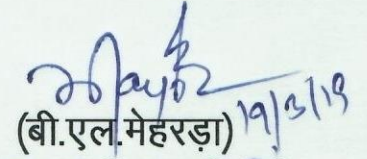 19/3/19
(बी.एल.मेहरड़ा)